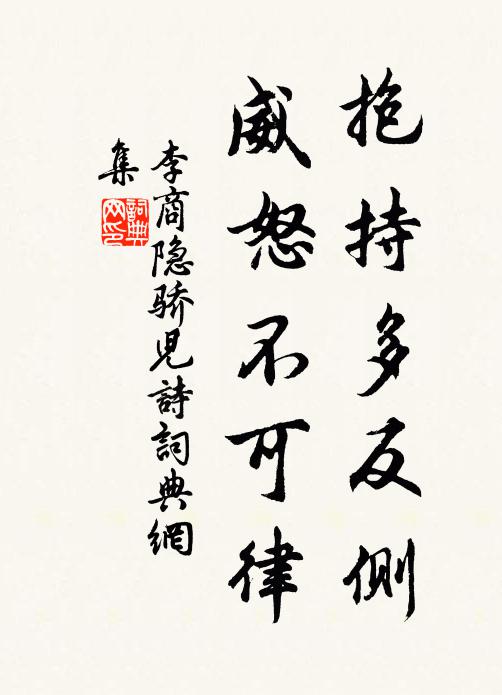 抱持多反側
威怒不可律
李商隐骄児詩詞典網
集
詞典
网印